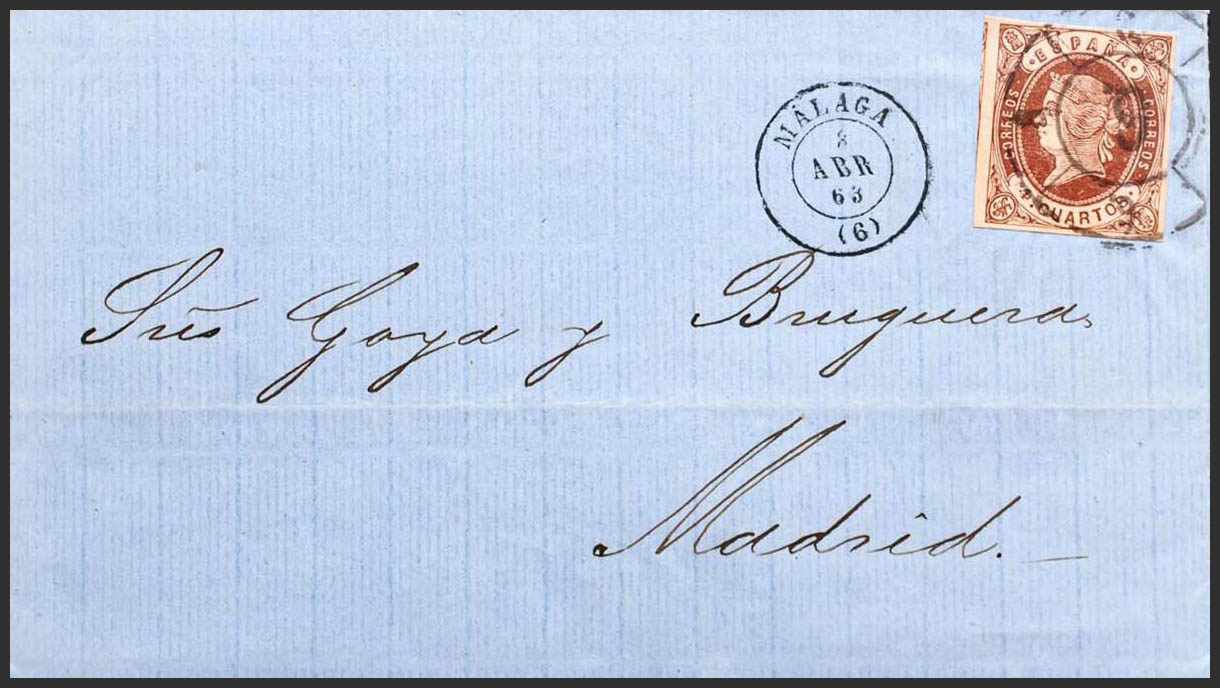 ESPAÑA
CORREOS
CORREOS
4 CUARTOS.
MÁLAGA
8
ABR
63
(6)
Sres Goya y Bruguera,
Madrid.